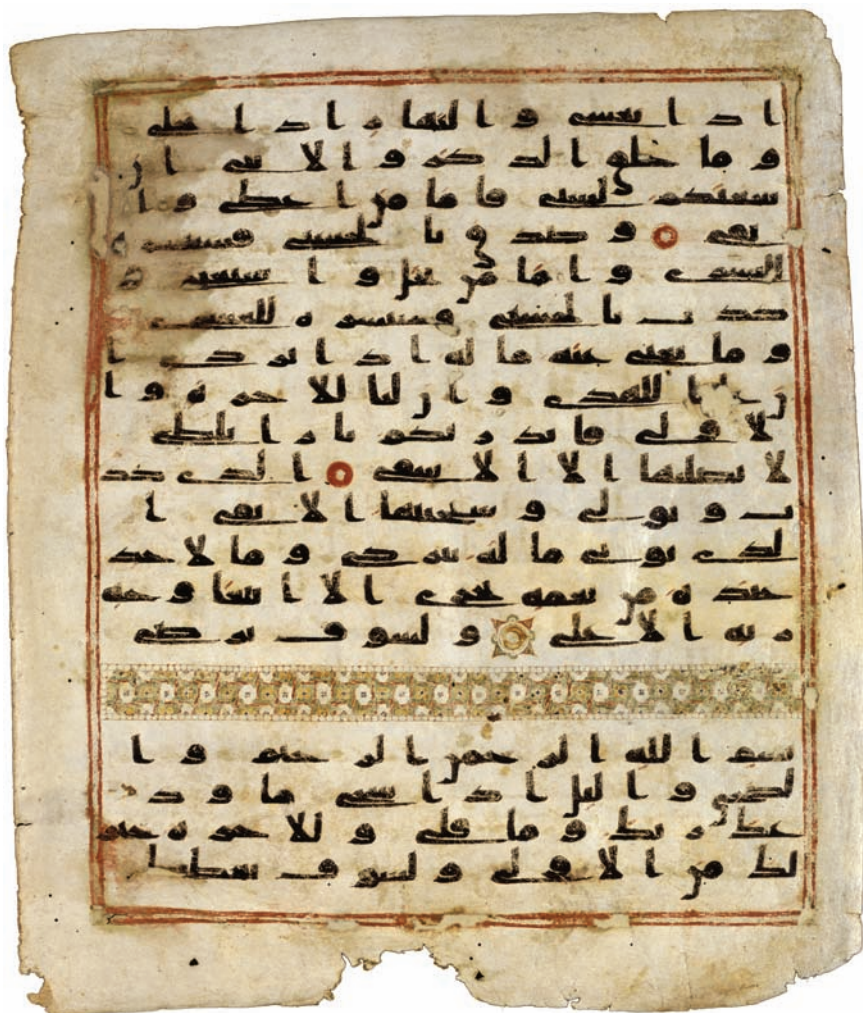 اذا يغشى والنهار اذا تجلى
وما خلق الذكر والانثى ان
سعيكم لشتى فاما من اعطى وا
تقى وصدق بالحسنى فسنيسره
لليسرى واما من بخل واستغنى و
كذب بالحسنى فسنيسره للعسرى
وما يغني عنه ماله اذا تردى ا
ن للهدى وان لنا للاخرة وا
لاولى فانذرتكم نارا تلظى
لا يصليها الا الاشقى الذي كذ
ب وتولى وسيجنبها الاتقى ا
لذي يؤتي ماله يتزكى وما لاحد
عنده من نعمة تجزى الا ابتغا وجه
ربه الاعلى ولسوف يرضى
بسم الله الرحمن الرحيم وا
لضحى والليل اذا سجى ما ود
عك ربك وما قلى وللاخرة خير
لك من الاولى ولسوف يعطيك